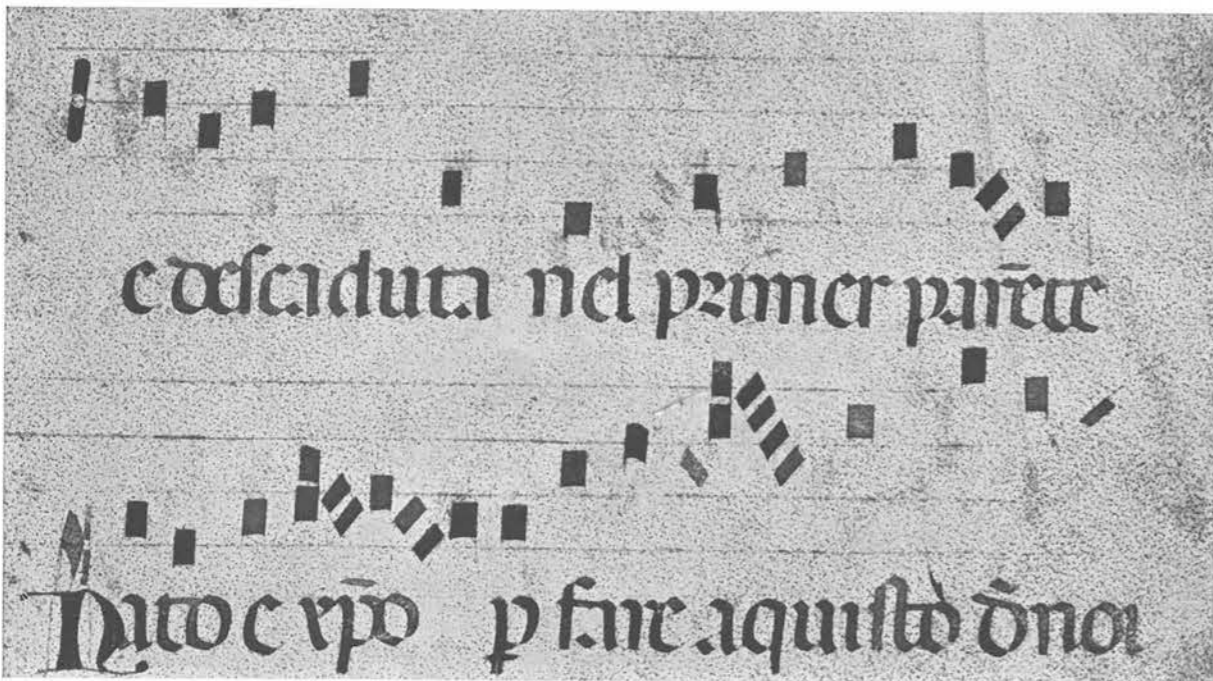 e descaduta nel primer parēte
Nato e xp̄o p fare aquisto d̄ noi